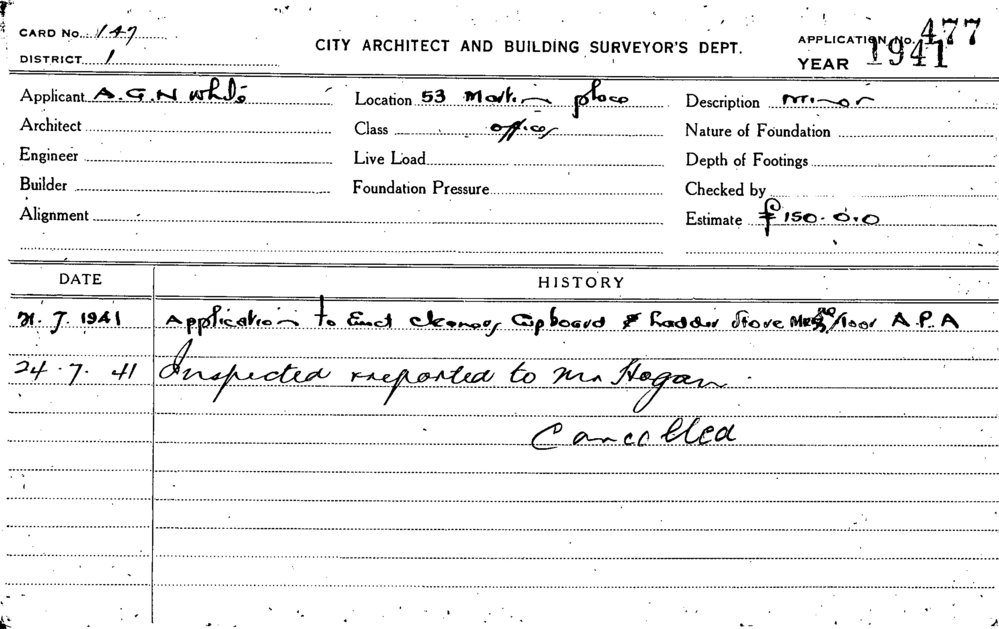 CARD No. 147
DISTRICT 1
CITY ARCHITECT AND BUILDING SURVEYOR'S DEPT.
APPLICATION No. 477
YEAR 1941
Applicant A.G.N White
Location 53 Martin place
Description minor
Architect
Class offices
Nature of Foundation
Engineer
Live Load
Depth of Footings
Builder
Foundation Pressure
Checked by
Alignment
Estimate £150.0.0
DATE
HISTORY
21.7.1941 Application to Erect cleaners Cupboard & Ladder Store floor A.P.A
24.7.41 Inspected & reported to Mr Hogan.
Cancelled